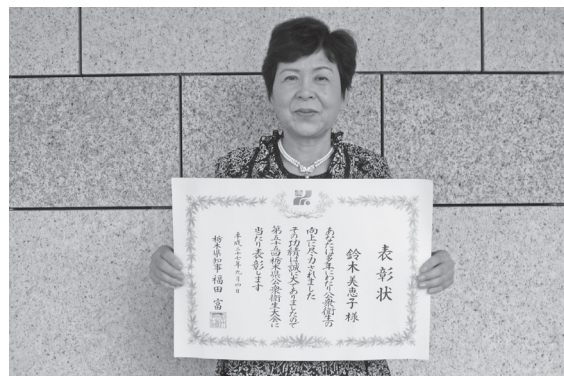 表彰状
鈴木美恵子様
あなたは多年にわたり公衆衛生の
向上に尽力されました
その功績は誠に大でありましたので
第五十五回栃木県公衆衛生大会に
当たり表彰します
平成二十七年九月四日
栃木県知事 福田富